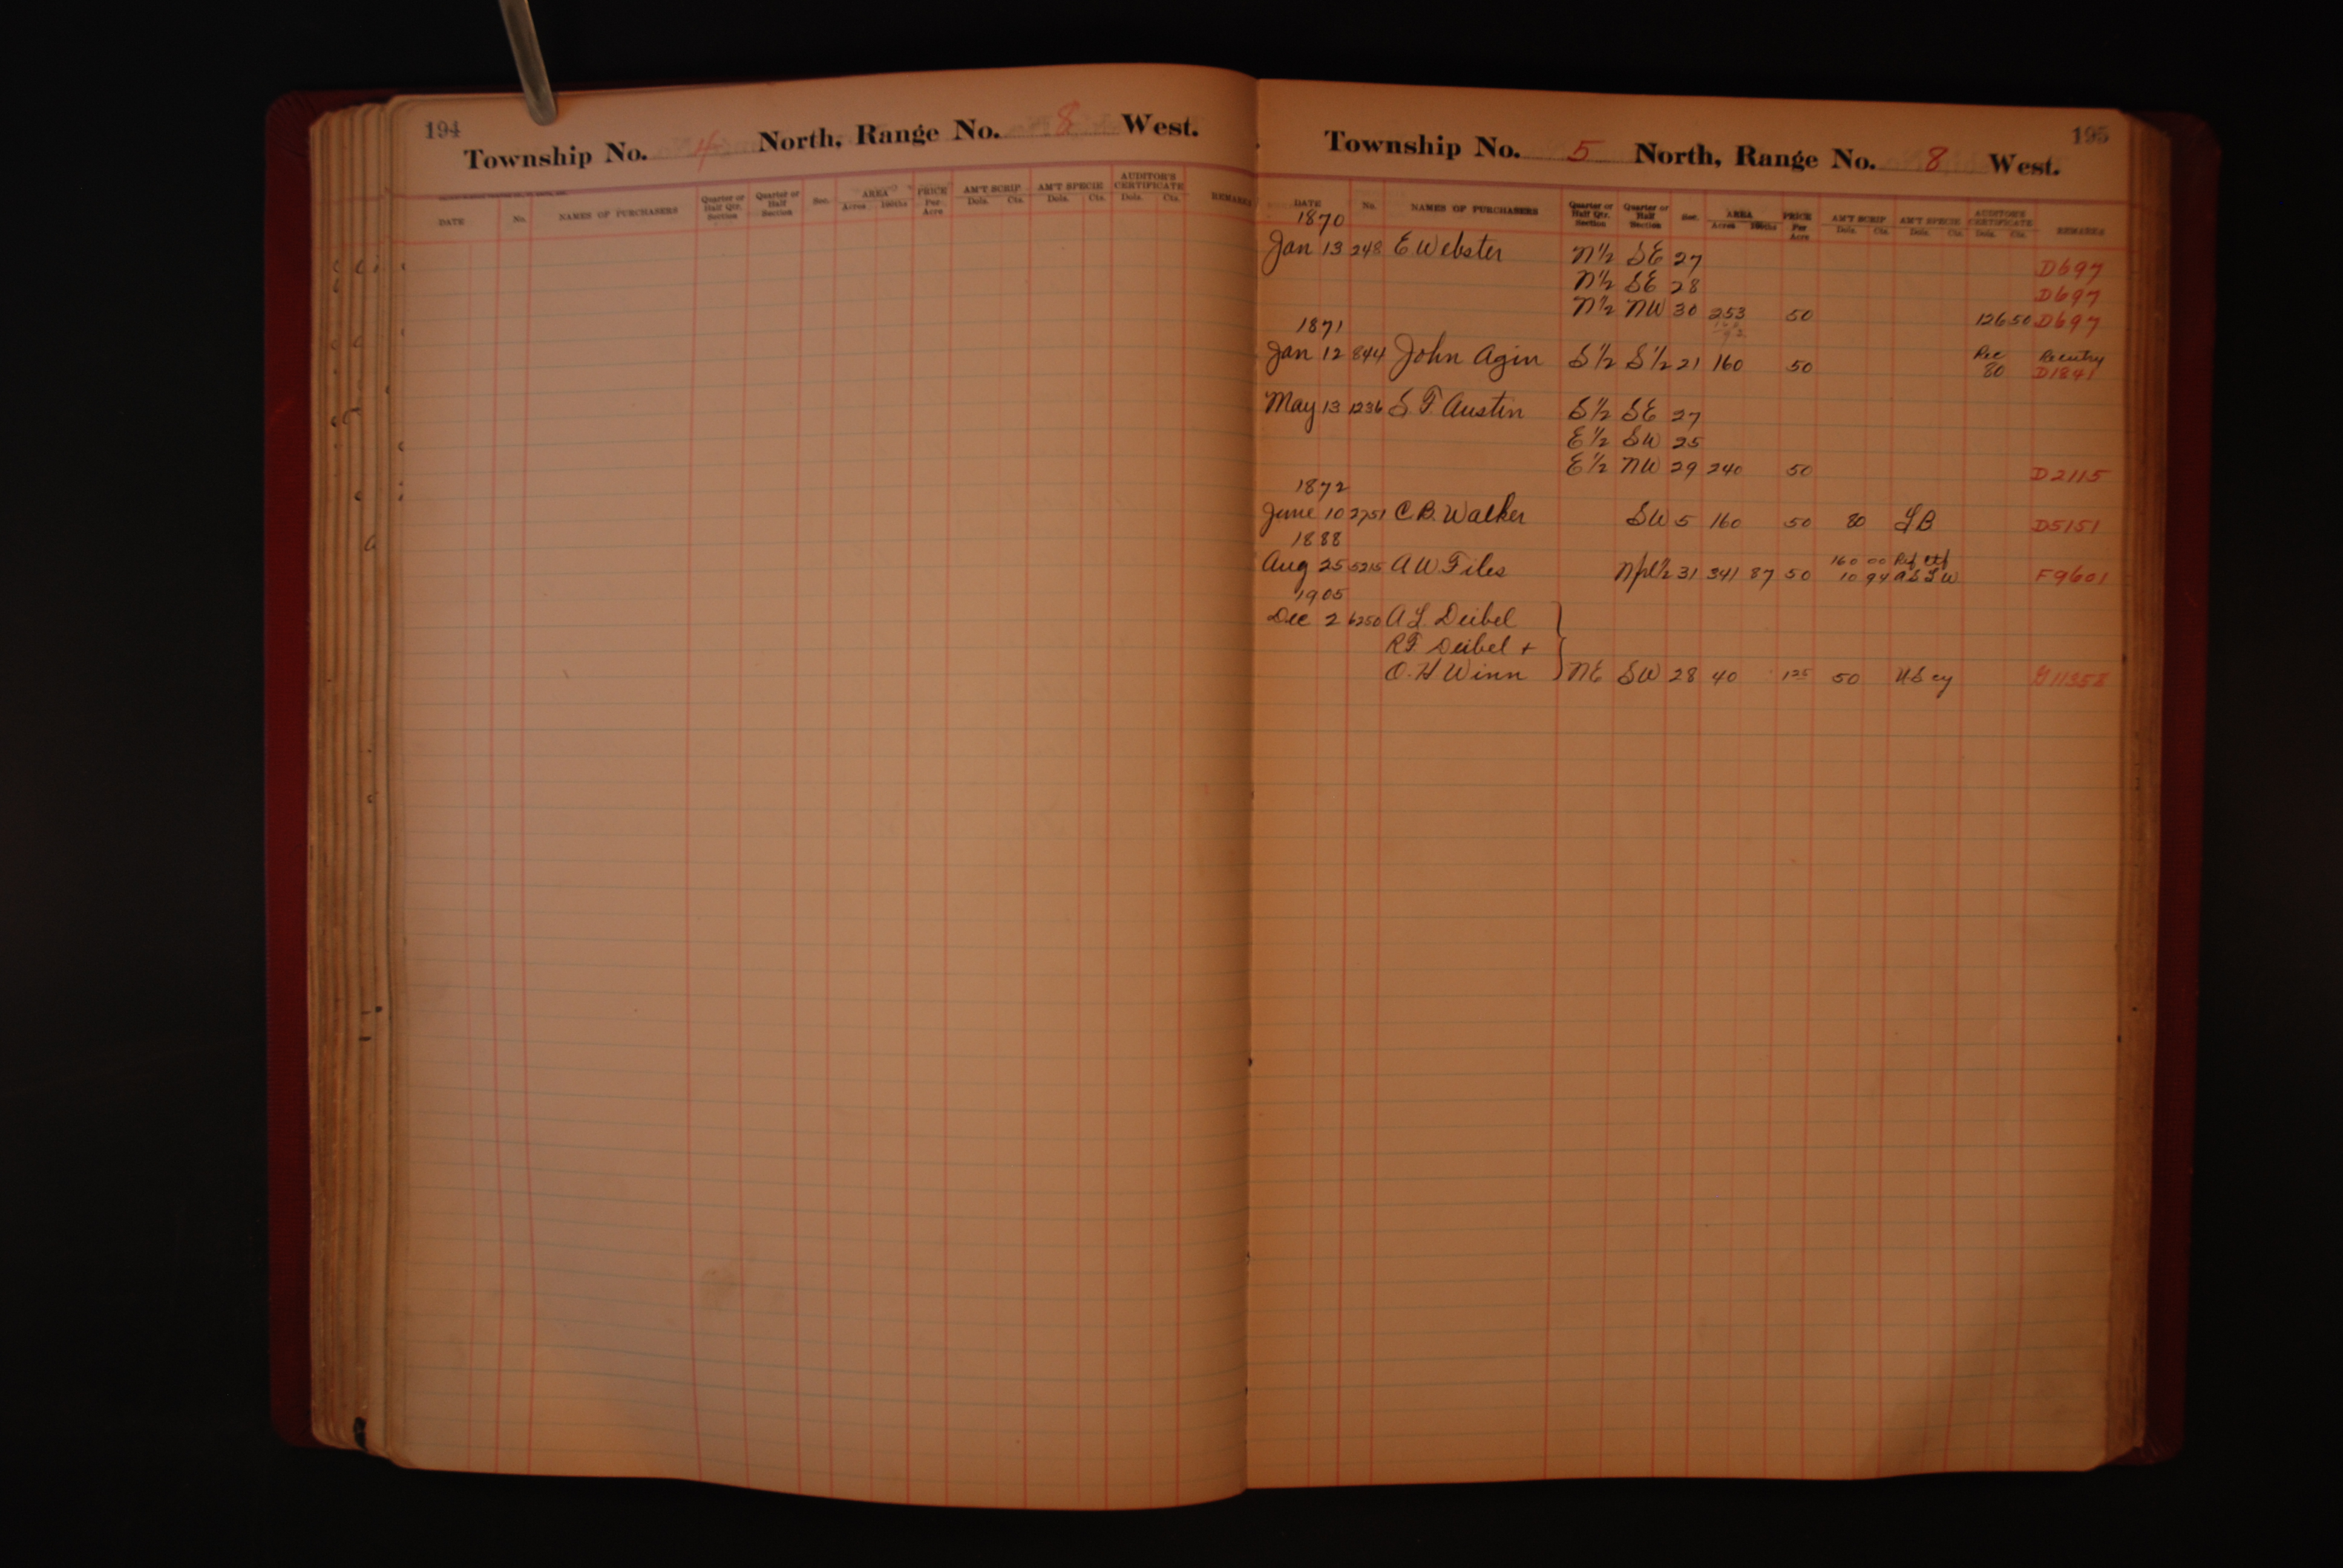 194
Township No. 4 North, Range No. 8 West.
DATE No. NAMES OF PURCHASERS Quarter or Half Qtr. Section Quarter or Half Section Sec. AREA Acres 100ths PRICE Per Acre AM'T SCRIP Dols. Cts. AM'T SPECIE Dols. Cts. AUDITOR'S CERTIFICATE Dols. Cts. REMARKS
195
Township No. 5 North, Range No. 8 West.
DATE No. NAMES OF PURCHASERS Quarter or Half Qtr. Section Quarter or Half Section Sec. AREA Acres 100ths PRICE Per Acre AM'T SCRIP Dols. Cts. AM'T SPECIE Dols. Cts. AUDITOR'S CERTIFICATE Dols. Cts. REMARKS
1870
Jan 13 248 E Webster N½ SE 27 D697
N½ SE 28 D697
N½ NW 30 253 50 126 50 D697
1871
Jan 12 844 John Agin S½ S½ 21 160 50 Rec 80 Reentry D1841
May 13 1236 S. F. Austin S½ SE 27
E½ SW 25
E½ NW 29 240 50 D2115
1872
June 10 2751 C.B. Walker SW 5 160 50 80 LB D5151
1888
Aug 25 5215 A W Files N pt ½ 31 341 87 50 160 00 10 94 F9601
1905
Dec 2 6250 A L Deibel
R F. Deibel +
O. H Winn NE SW 28 40 1 25 50 US cy G11358